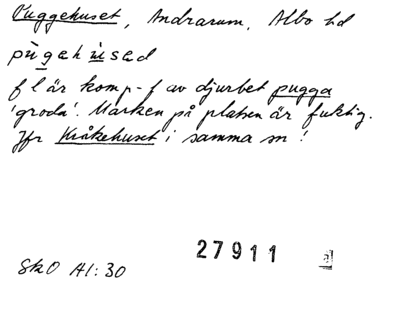 Puggehuset, Andrarum, Albo hd
pùgehùsəd
f l är komp-f av djurbet pugga
'groda'. Marken på platsen är fuktig.
Jfr Kråkehuset i samma sn!
27911
SkO A1:30